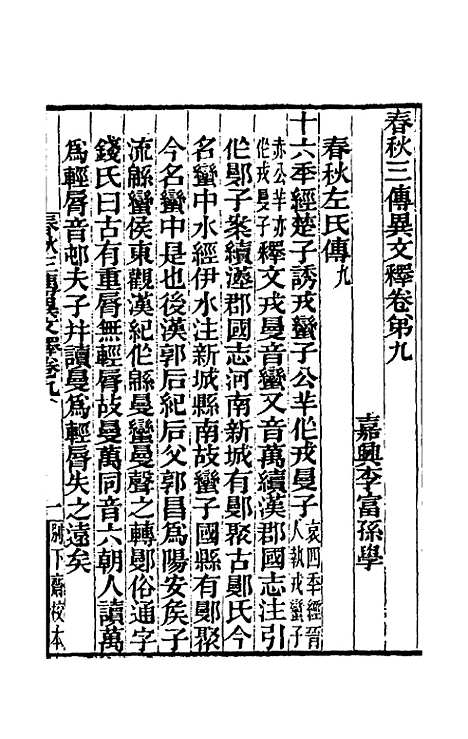 春秋三傳異文釋卷第九
嘉興李富孫學
春秋左氏傳九
十六秊經楚子誘戎蠻子公羊作戎曼子哀四秊經晉人執戎蠻子
赤公羊亦作戎曼子釋文戎曼音蠻又音萬續漢郡國志注引
作鄤子案續漢郡國志河南新城有鄤聚古鄤氏今
名蠻中水經伊水注新城縣南故蠻子國縣有鄤聚
今名蠻中是也後漢郭后紀后父郭昌爲陽安矦子
流緜蠻侯東觀漢紀作緜曼蠻曼聲之轉鄤俗通字
錢氏曰古有重脣無輕脣故曼萬同音六朝人讀萬
爲輕脣音邨夫子幷讀曼爲輕脣失之遠矣
春秋三傳異文釋卷九
一
別下齋校本